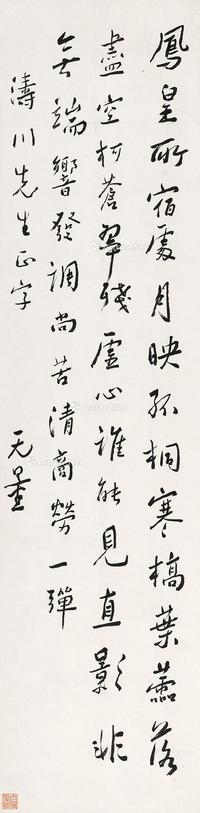 鳳皇所宿處月映孤桐寒槁葉蕭落
盡空柯蒼翠殘虛心誰能見直影非
無端響發調尚苦清商勞一彈
濤川先生正字
无量